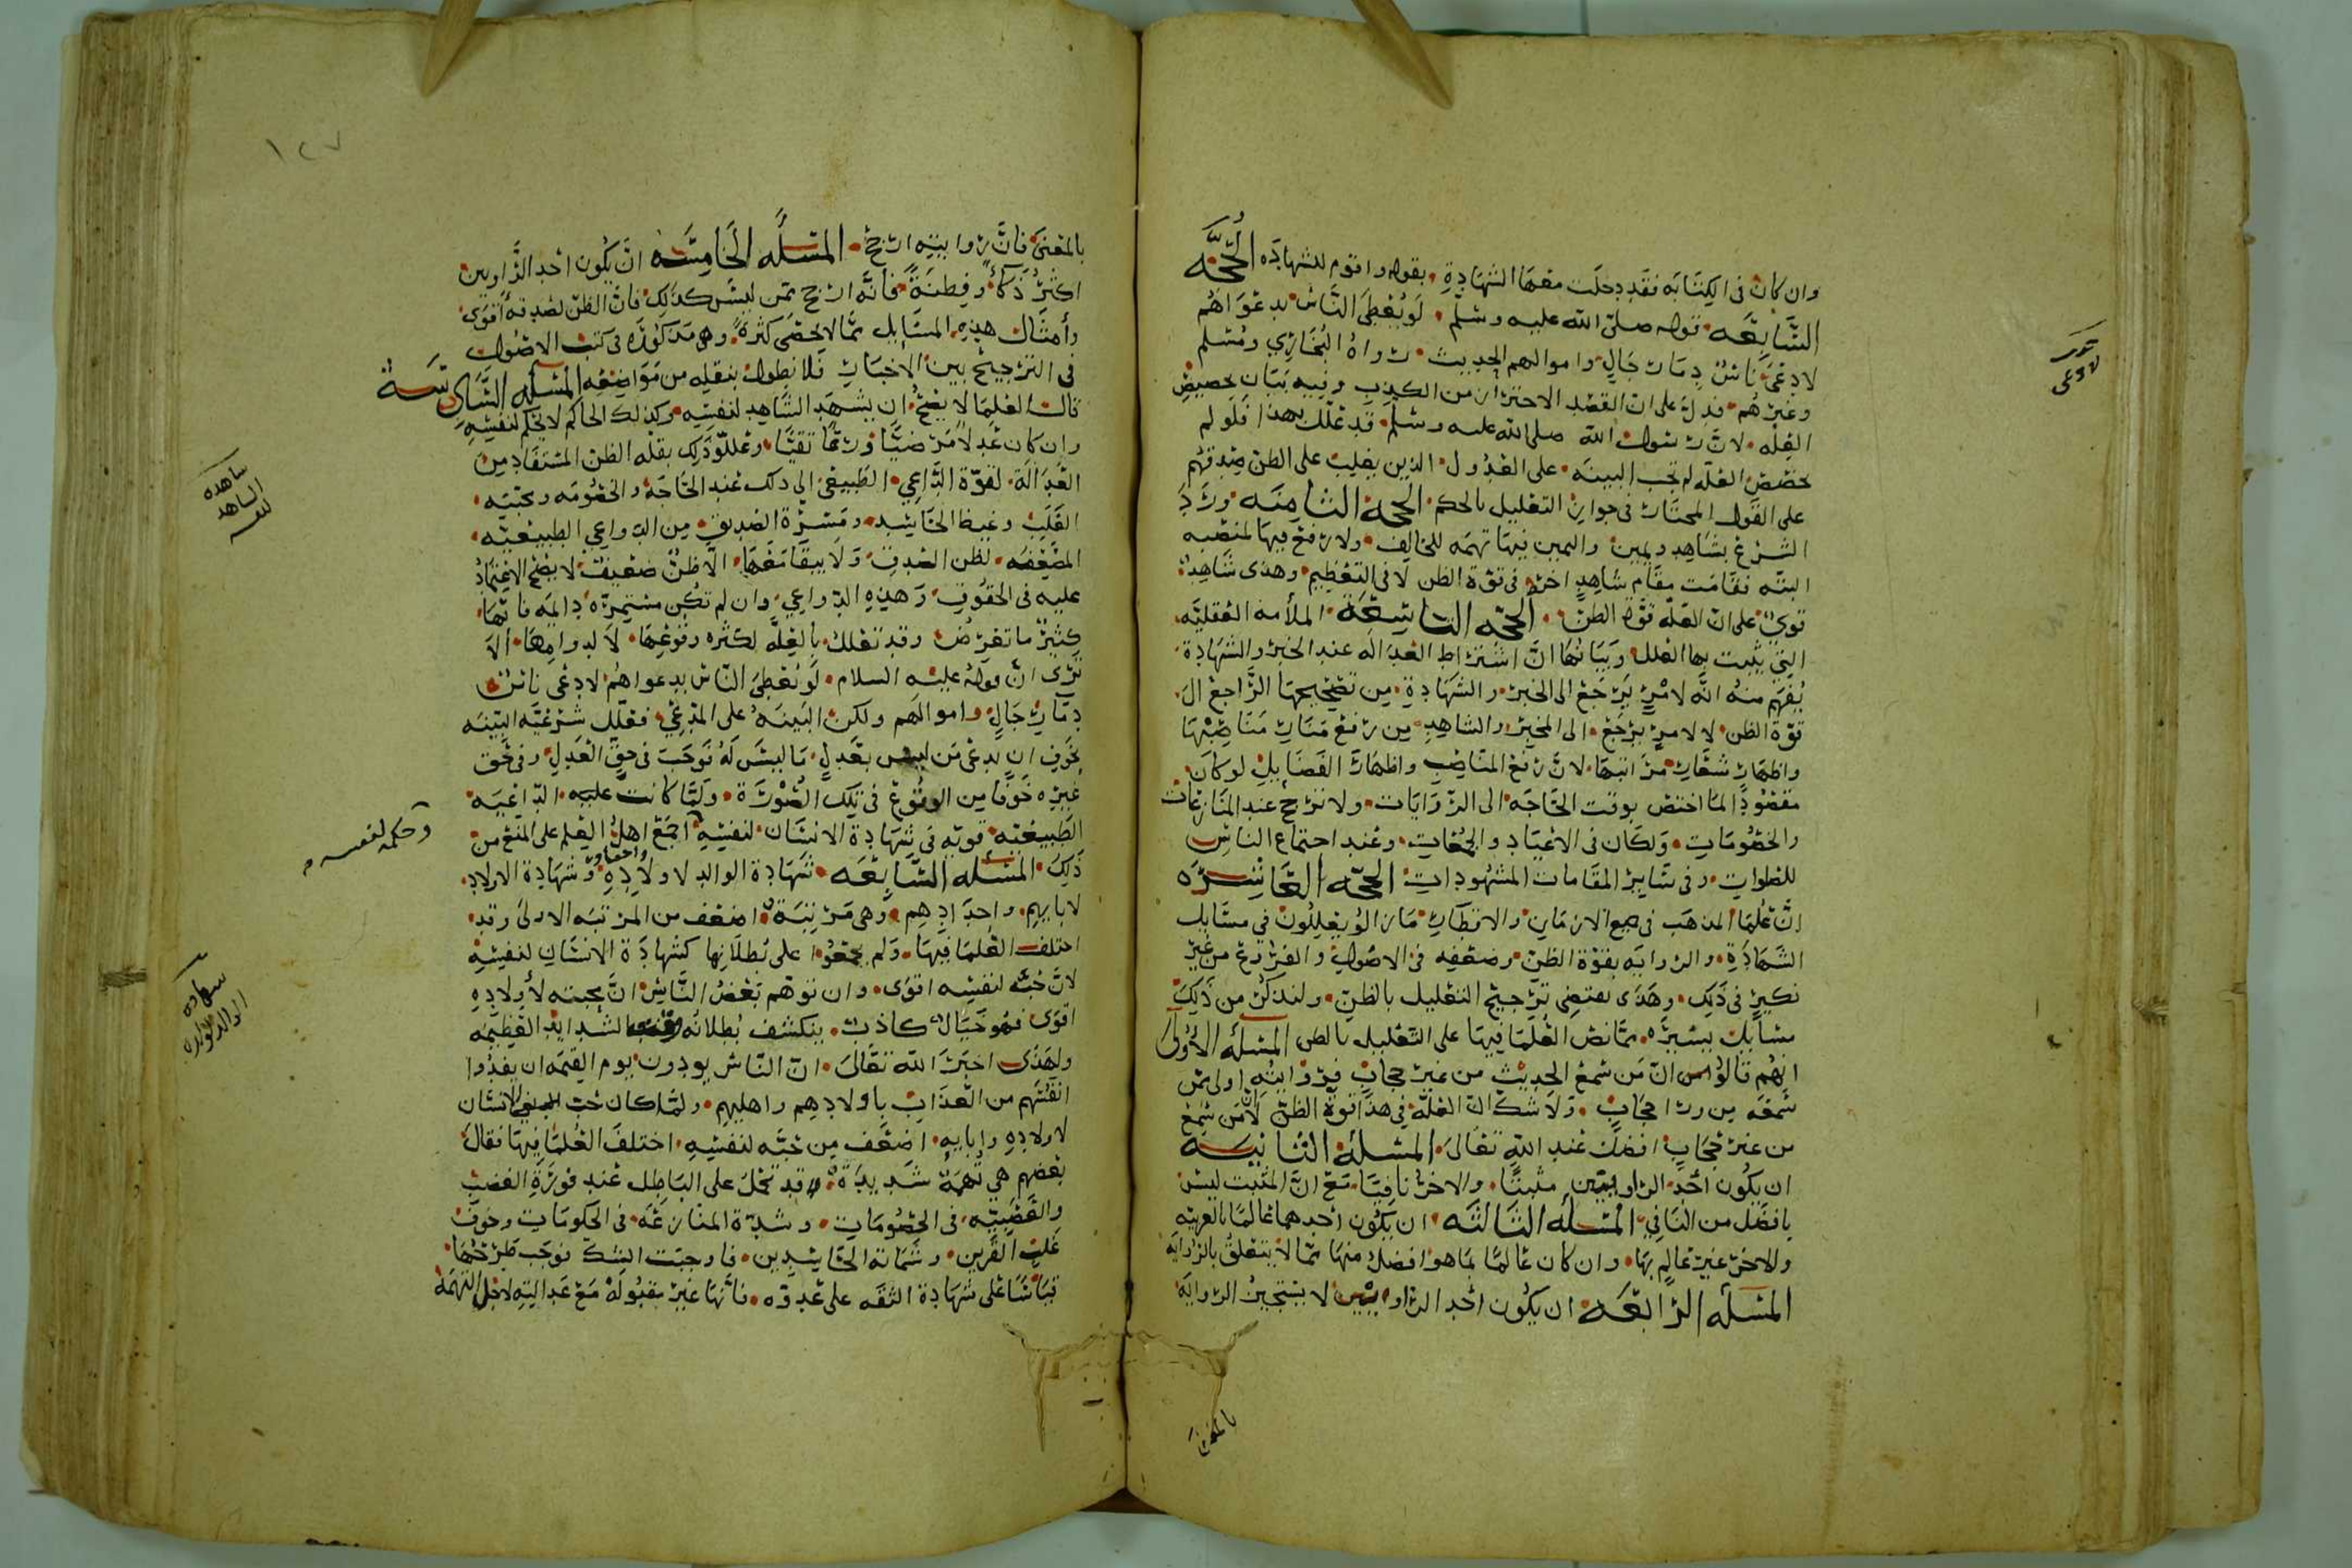 وان كان في الكتابه فقد دخلت معها الشهادة بقوله واقوم للشهاده الحجه
السابعه قوله صلى الله عليه وسلم لو يعطى الناس بدعواهم
لادعى ناس دما رجال واموالهم الحديث رواه البخاري ومسلم
وغيرهم فدل على ان القصد الاحتراز من الكذب وفيه بيان تخصيص
العله لان رسول الله صلى الله عليه وسلم قد علل بهذا فلو لم
تخصص العله لم تجب البينه على العدول الذين يغلب على الظن صدقهم
على القول المختار في جواز التعليل بالحكم الحجه الثامنه ورد
الشرع بشاهد ويمين واليمين فيها تهمه للحالف ولا رفع فيها لمنصبه
البته فقامت مقام شاهد اخر في قوة الظن لا في التعظيم وهذى شاهد
قوي على ان العله قوة الظن الحجه التاسعة الملأمه العقليه
التي يثبت بها العلل وبيانها ان اشتراط العداله عند الخبر والشهادة
يفهم منه انه لامر يرجع الى الخبر والشهادة من تصحيحها الراجع الى
قوة الظن لا لامر يرجع الى المخبر والشاهد من رفع منار مناصبها
واظهار شعار مراتبها لان رفع المناصب واظهار الفضايل لو كان
مقصودا لما اختص بوقت الحاجه الى الروايات ولا ترجح عند المنازعات
والخصومات ولكان في الاعياد والجمعات وعند اجتماع الناس
للصلوات وفي ساير المقامات المشهودات الحجه العاشره
ان علما المذهب في جميع الازمان والاقطار ما زالوا يعللون في مسايل
الشهادة والروايه بقوة الظن وضعفه في الاصول والفروع من غير
نكير في ذلك وهذى يقتضي ترجيح التعليل بالظن ولنذكر من ذلك
مسايل يسيره مما نص العلما فيها على التعليل بالظن المسله الأولى
انهم قالوا ان من سمع الحديث من غير حجاب فروايته اولى ممن
سمعه من ورا حجاب ولا شك ان العله في هذا قوة الظن لان من سمع
من غير حجاب افضل عند الله تعالى المسلة الثانيه
ان يكون احد الراويين مثبتا والاخر نافيا مع ان المثبت ليس
بافضل من النافي المسله الثالثه ان يكون احدهما عالما بالعربيه
والاخر غير عالم بها وان كان عالما بما هو افضل منها مما لا يتعلق بالروايه
المسله الرابعه ان يكون احد الراويين لا يستجيز الروايه
بالمعنى
بالمعنى فان روايته ارجح المسله الخامسه ان يكون احد الراويين
اكثر ذكا وفطنة فانه ارجح ممن ليس كذلك فان الظن لصدقه اقوى
وأمثال هذه المسايل مما لا يحصى كثرة وهي مذكوره في كتب الاصول
في الترجيح بين الاخبار فلا نطول بنقله من مواضعه المسله السادسة
قالت العلما لا يصح ان يشهد الشاهد لنفسه وكذلك الحاكم لا يحكم لنفسه
وان كان عدلا مرضيا ورعا تقيا وعللو ذلك بقله الظن المستفاد من
العدالة لقوة الداعي الطبيعي الى ذلك عند الحاجة والخصومه ومحبته
القلب وغيظ الحاسد ومسرة الصديق من الدواعي الطبيعيه
المضعفه لظن الصدق ولا يبقا معها الا ظن ضعيف لا يصلح الاعتماد
عليه في الحقوق وهذه الدواعي وان لم تكن مستمره دايمه فانها
كثير ما تعرض وقد تعلل بالعله لكثره وقوعها لا لدوامها الا
ترى ان قوله عليه السلام لو يعطى الناس بدعواهم لادعى ناس
دما رجال واموالهم ولكن البينه على المدعي فعلل شرعيه البينه
بخوف ان يدعي من ليس بعدل ما ليس له فوجب في حق العدل وفي حق
غيره خوفا من الوقوع في تلك الصورة ولما كانت عليه الداعيه
الطبيعيه قويه في شهادة الانسان لنفسه اجمع اهل العلم على المنع من
ذلك المسله السابعه شهادة الوالد لاولاده واحفاده وشهادة الاولاد
لابايهم واجدادهم وهي مرتبة اضعف من المرتبه الاولى وقد
اختلف العلما فيها ولم يجمعوا على بطلانها كشهادة الانسان لنفسه
لان حبه لنفسه اقوى وان توهم بعض الناس ان محبته لأولاده
اقوى فهو خيال كاذب ينكشف بطلانه عند الشدايد العظيمه
ولهذى اخبر الله تعالى ان الناس يودون يوم القيمه ان يفدوا
انفسهم من العذاب باولادهم واهليهم ولما كان حب الانسان
لاولاده وابايه اضعف من حبه لنفسه اختلف العلما فيها فقال
بعضهم هي تهمة شديدة قد تحمل على الباطل عند فورة الغضب
والعصبيه في الخصومات وشدة المنازعه في الحكومات وخوف
غلب القرين وشماتة الحاسدين فاوجبت الشك فوجب طرحها
قياسا على شهادة الثقه على عدوه فانها غير مقبولة مع عداليته لاجل التهمة
١٢٧
شاهده
الشاهد
لنفسه
وحكمه لنفسه
شهاده
الوالد لاولاده